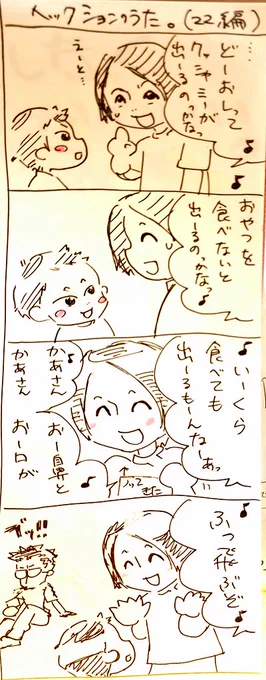 ヘックションのうた。(22編)
…どーおしって
クッシャミーが
出ーるのっかなっ♪
えーと…
おやつを
食べないと
出ーるのっかなっ♪
♪いーくら
食べても
出ーるもーんなーあっ
かあさん
お一鼻と
かあさん
お一口が♪
↑
ノッて
きた
ふっ飛ぶぞ♪
ブッ!!